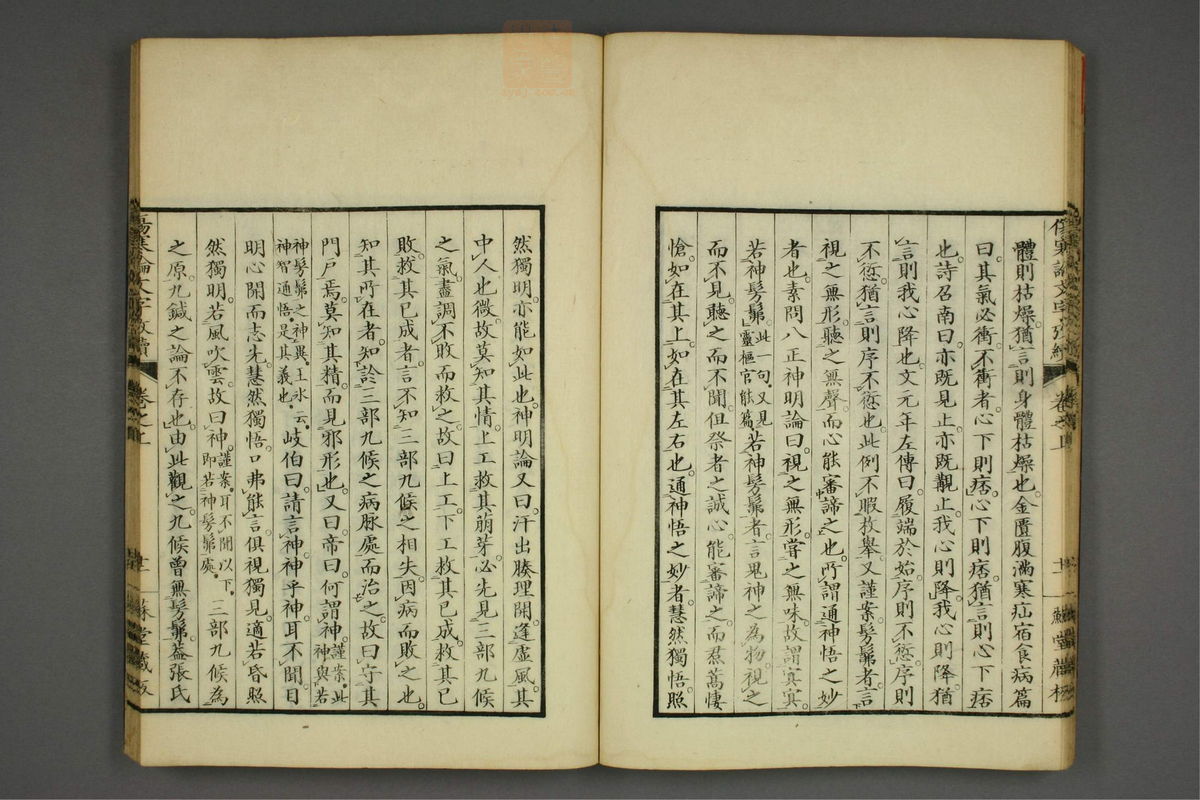 體則枯燥。猶言則身體枯燥也。金匱腹滿寒疝宿食病篇
曰。其氣必衝。不衝者。心下則痞。心下則痞。猶言則心下痞
也。詩召南曰。亦既見止。亦既覯止。我心則降。我心則降。猶
言則我心降也。文元年左傳曰。履端於始。序則不愆。序則
不愆。猶言則序不愆也。此例不暇枚舉。又謹案。髣髴者。言
視之無形。聽之無聲。而心能審諦之也。所謂通神悟之妙
者也。素問八正神明論曰。視之無形。嘗之無味。故謂冥冥。
若神髣髴。此一句。又見靈樞官能篇。若神髣髴者。言鬼神之為物。視之
而不見。聽之而不聞。但祭者之誠心。能審諦之。而焄蒿悽
愴。如在其上。如在其左右也。通神悟之妙者。慧然獨悟。照
然獨明。亦能如此也。神明論又曰。汗出腠理開。逢虛風。其
中人也微。故莫知其情。上工救其萌芽。必先見三部九候
之氣。盡調不敗而救之。故曰上工。下工救其已成。救其已
敗。救其已成者。言不知三部九候之相失。因病而敗之也。
知其所在者。知診三部九候之病脉處而治之。故曰守其
門戶焉。莫知其精。而見邪形也。又曰。帝曰。何謂神。謹案。此神與若
神髣髴之神異。王冰云。神智通悟。是其義也。岐伯曰。請言神。神乎神。耳不聞。目
明心開而志先。慧然獨悟。口弗能言。俱視獨見。適若昏。照
然獨明。若風吹雲。故曰神。謹案。耳不聞以下。即若神髣髴處。三部九候為
之原。九鍼之論不存也。由此觀之。九候曾無髣髴。蓋張氏